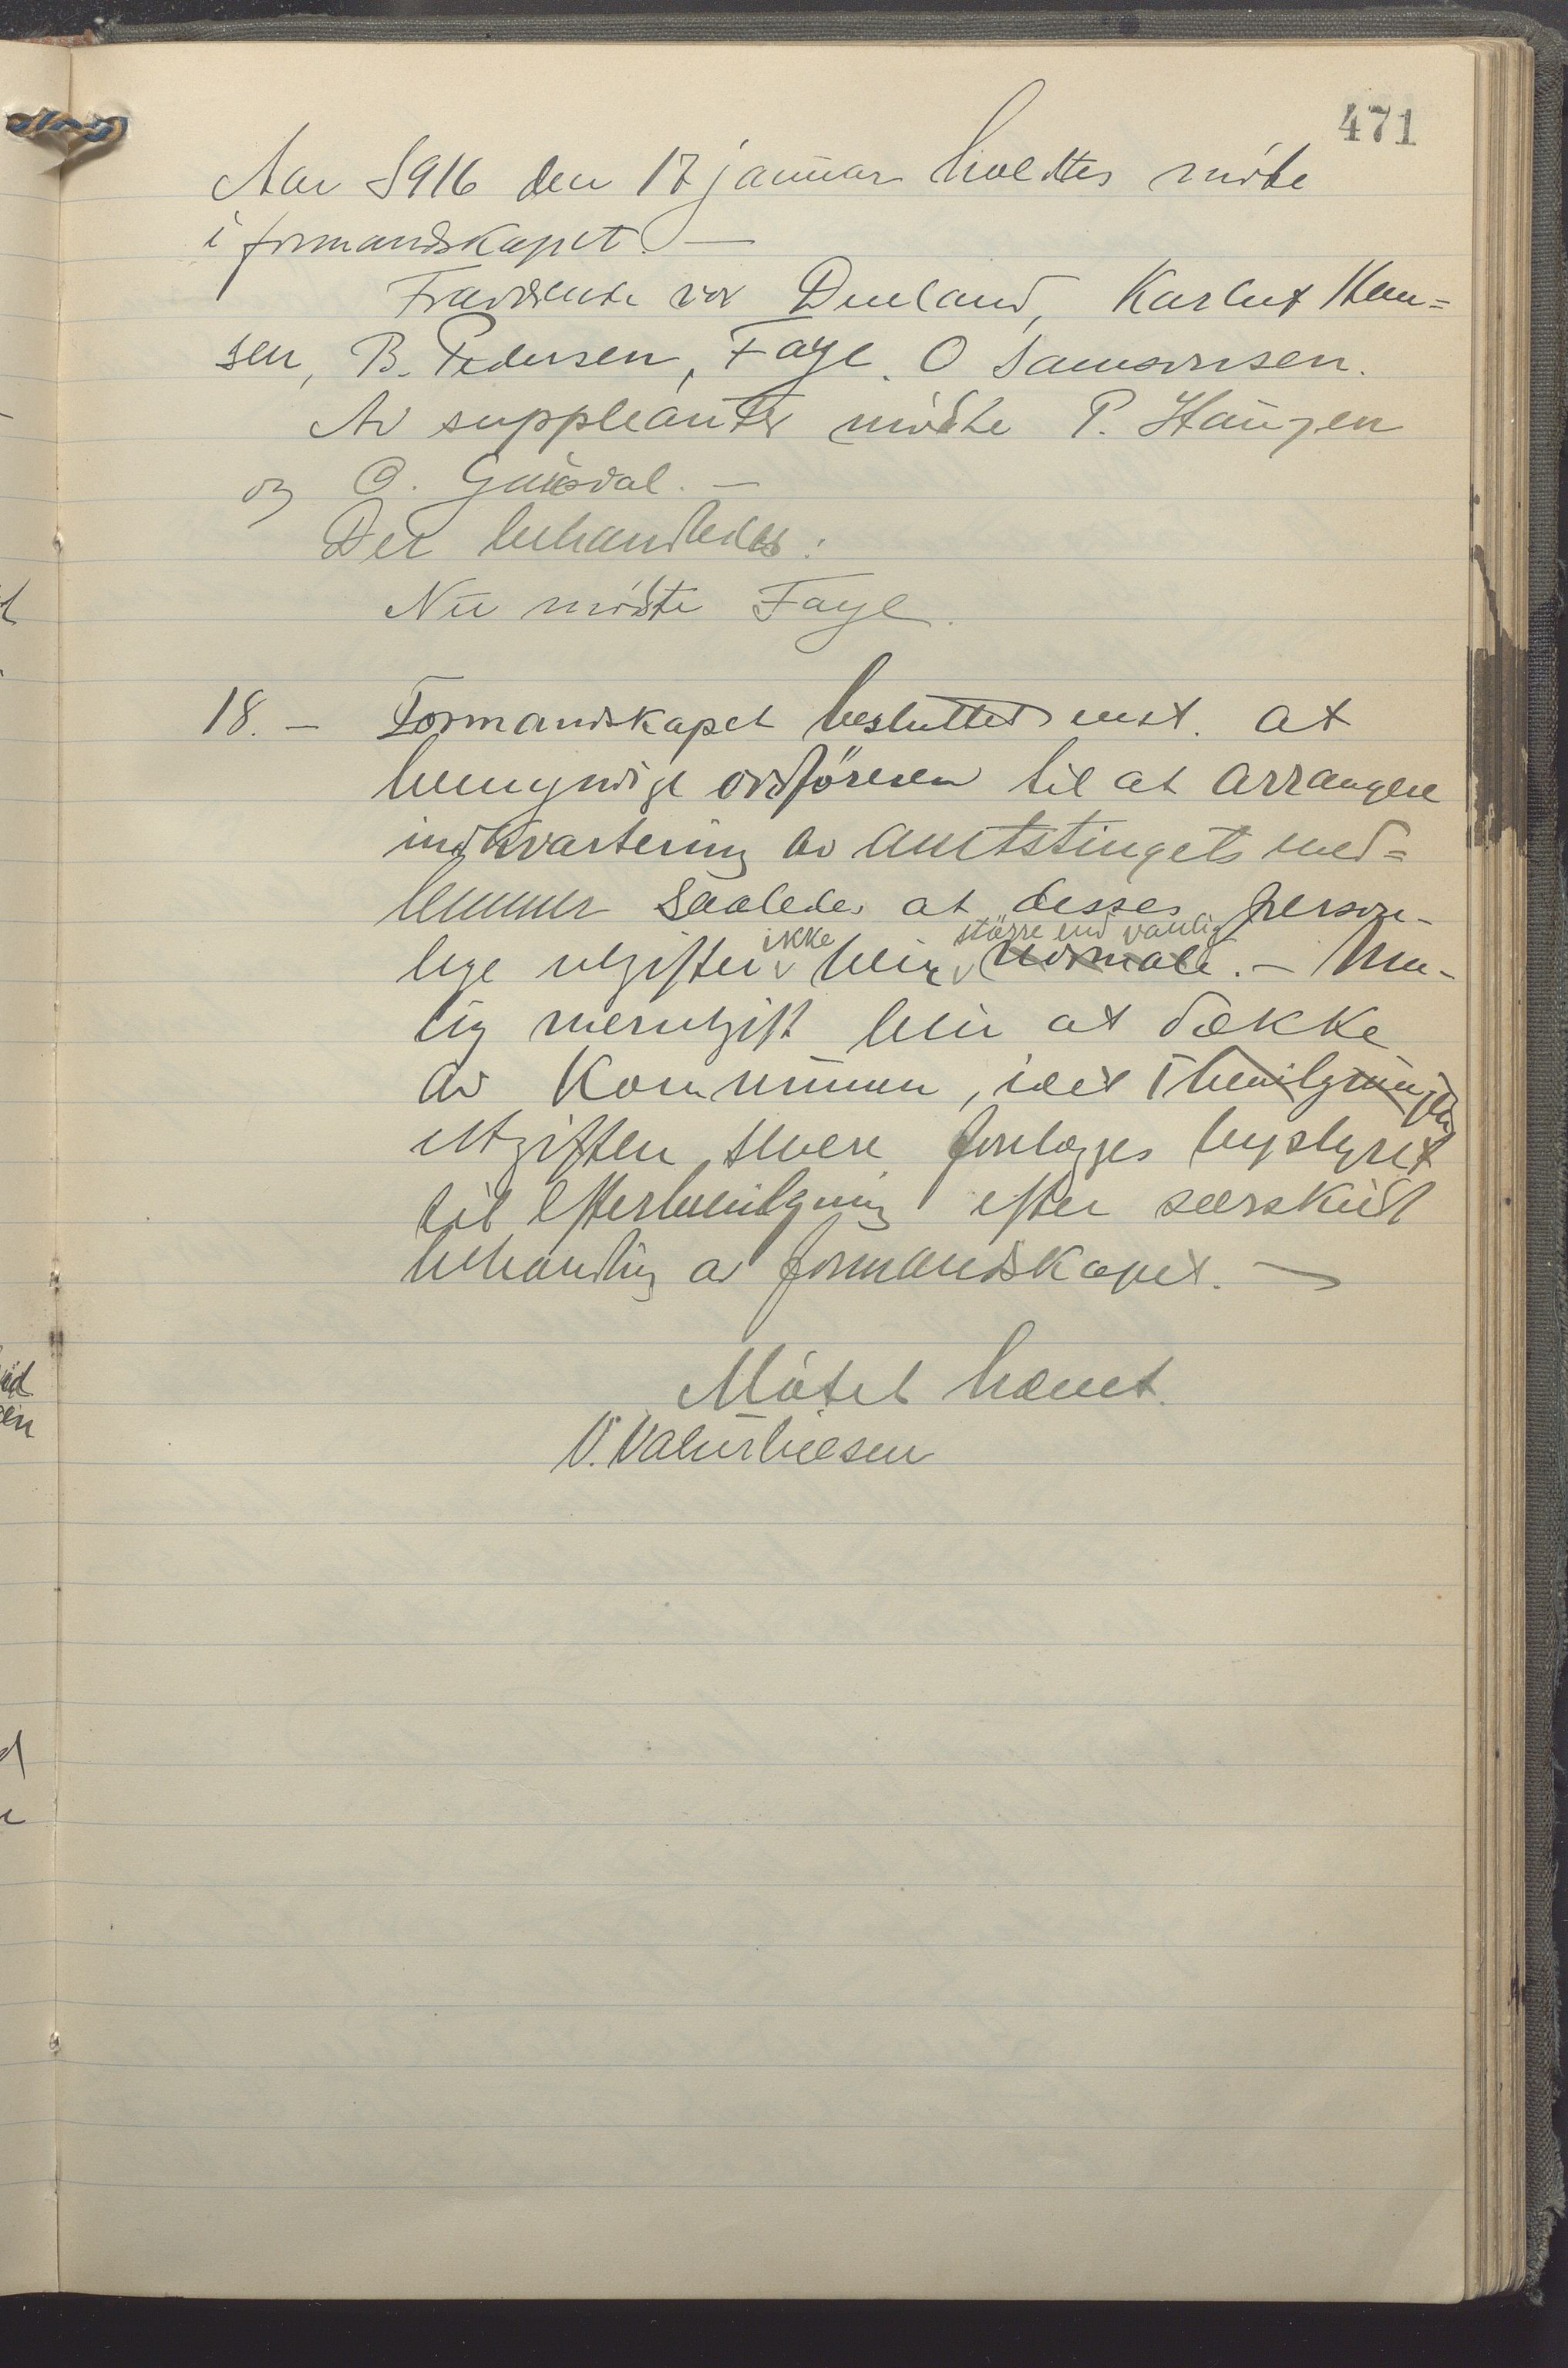 471
Aar 1916 den 17 januar holdtes möte
i formandskapet. —
Fraværende var Dueland, Karluf Han=
sen, B. Pedersen, Faye. O Samsonsen.
Av suppleanter mödte P. Haugen
og O. Gausdal. —
Der behandledes:
Nu mödte Faye.
18. — Formandskapet beslutted enst. at
bemyndige ordföreren til at arrangere
indkvartering av amtstingets med=
lemmer saaledes at disses person-
ikke större end vanlig
lige utgifter blir normale. — Mu-
lig merutgift blir at dække
av Kommunen, idet bevilgningen
utgiften senere forlægges bystyret
til efterbevilgning efter særskilt
behandling av formandskapet. —
Mötet hævet.